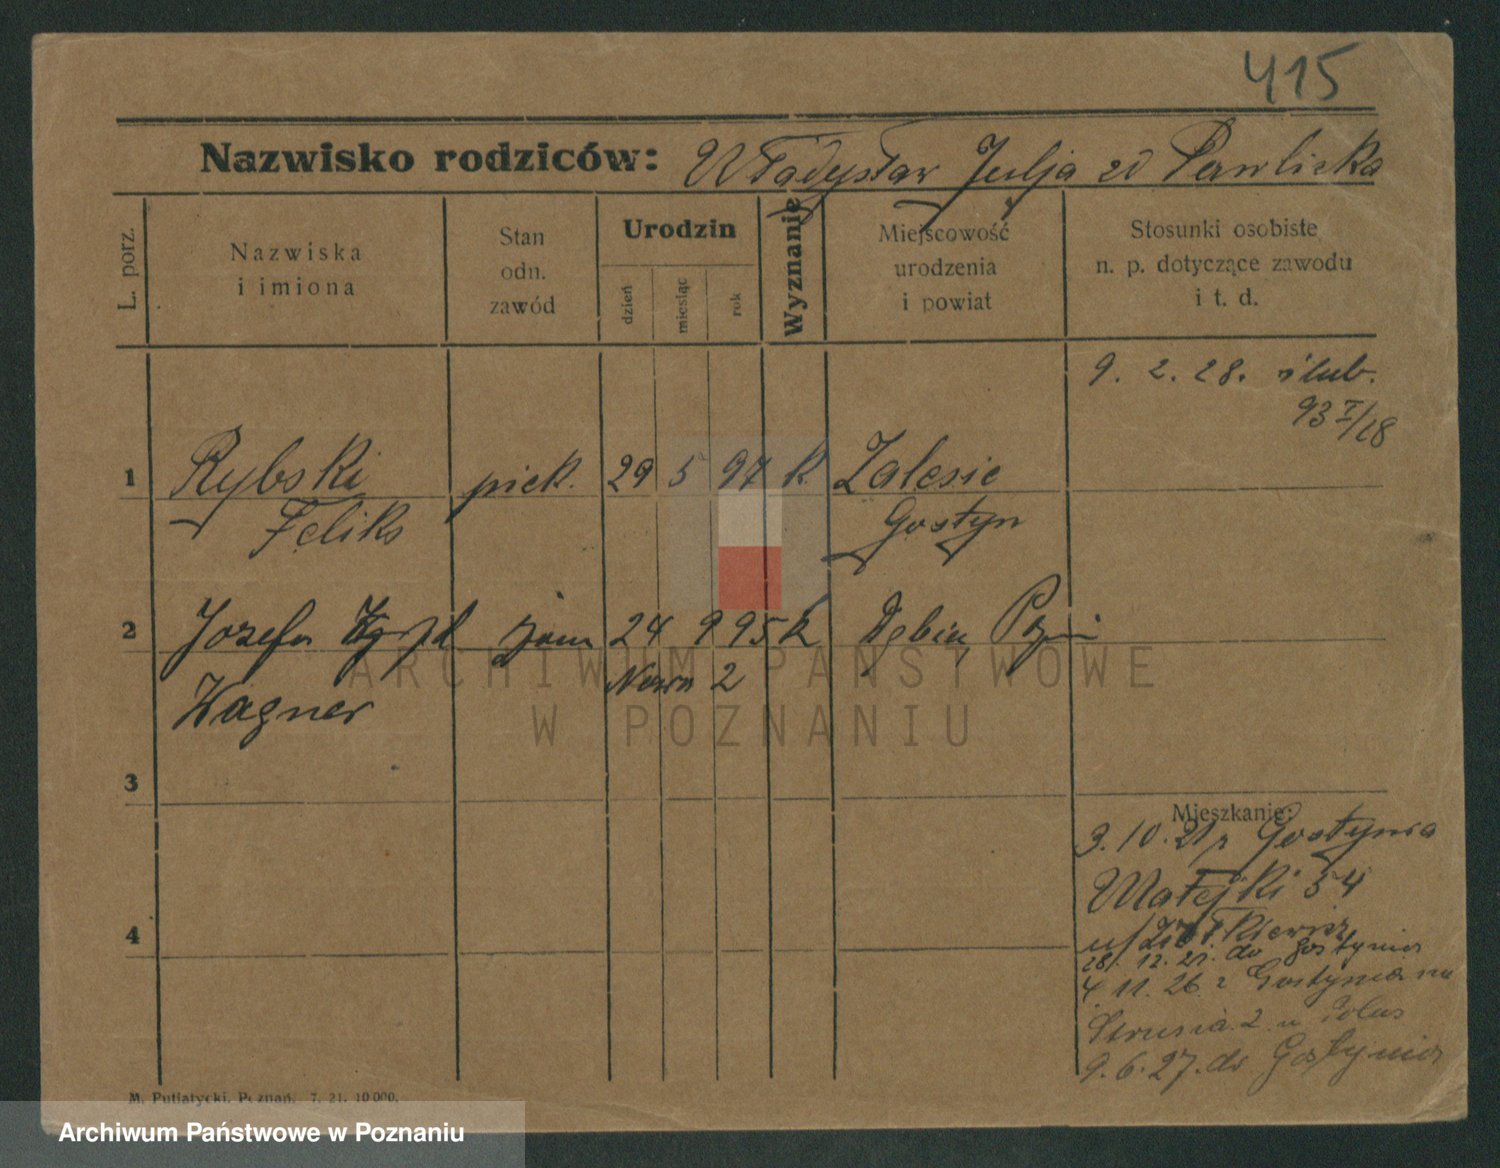 415
Nazwisko rodziców: Władysław Julja zd Pawlicka
L. porz.
Nazwiska
i imiona
Stan
odn.
zawód
Urodzin
dzień
miesiąc
rok
Wyznanie
Miejscowość
urodzenia
i powiat
Stosunki osobiste
n. p. dotyczące zawodu
i t. d.
9. 2. 28. ślub.
93 I/28
1 Rybski piek. 29 5 97 k. Zalesie
Feliks Gostyn
2 Józefa 24 9 95 k Dębiec
Wagner Nowa 2
3
Mieszkanie:
3. 10. 21 z Gostynia
Matejki 54
4
28. 12. 21. do Gostynia
4. 11. 26 z Gostynia na
Strusia 2 u
9. 6. 27. do Gostynia
M. Putiatycki, Poznań. 7. 21. 10 000.
ARCHIWUM PAŃSTWOWE
W POZNANIU
Archiwum Państwowe w Poznaniu